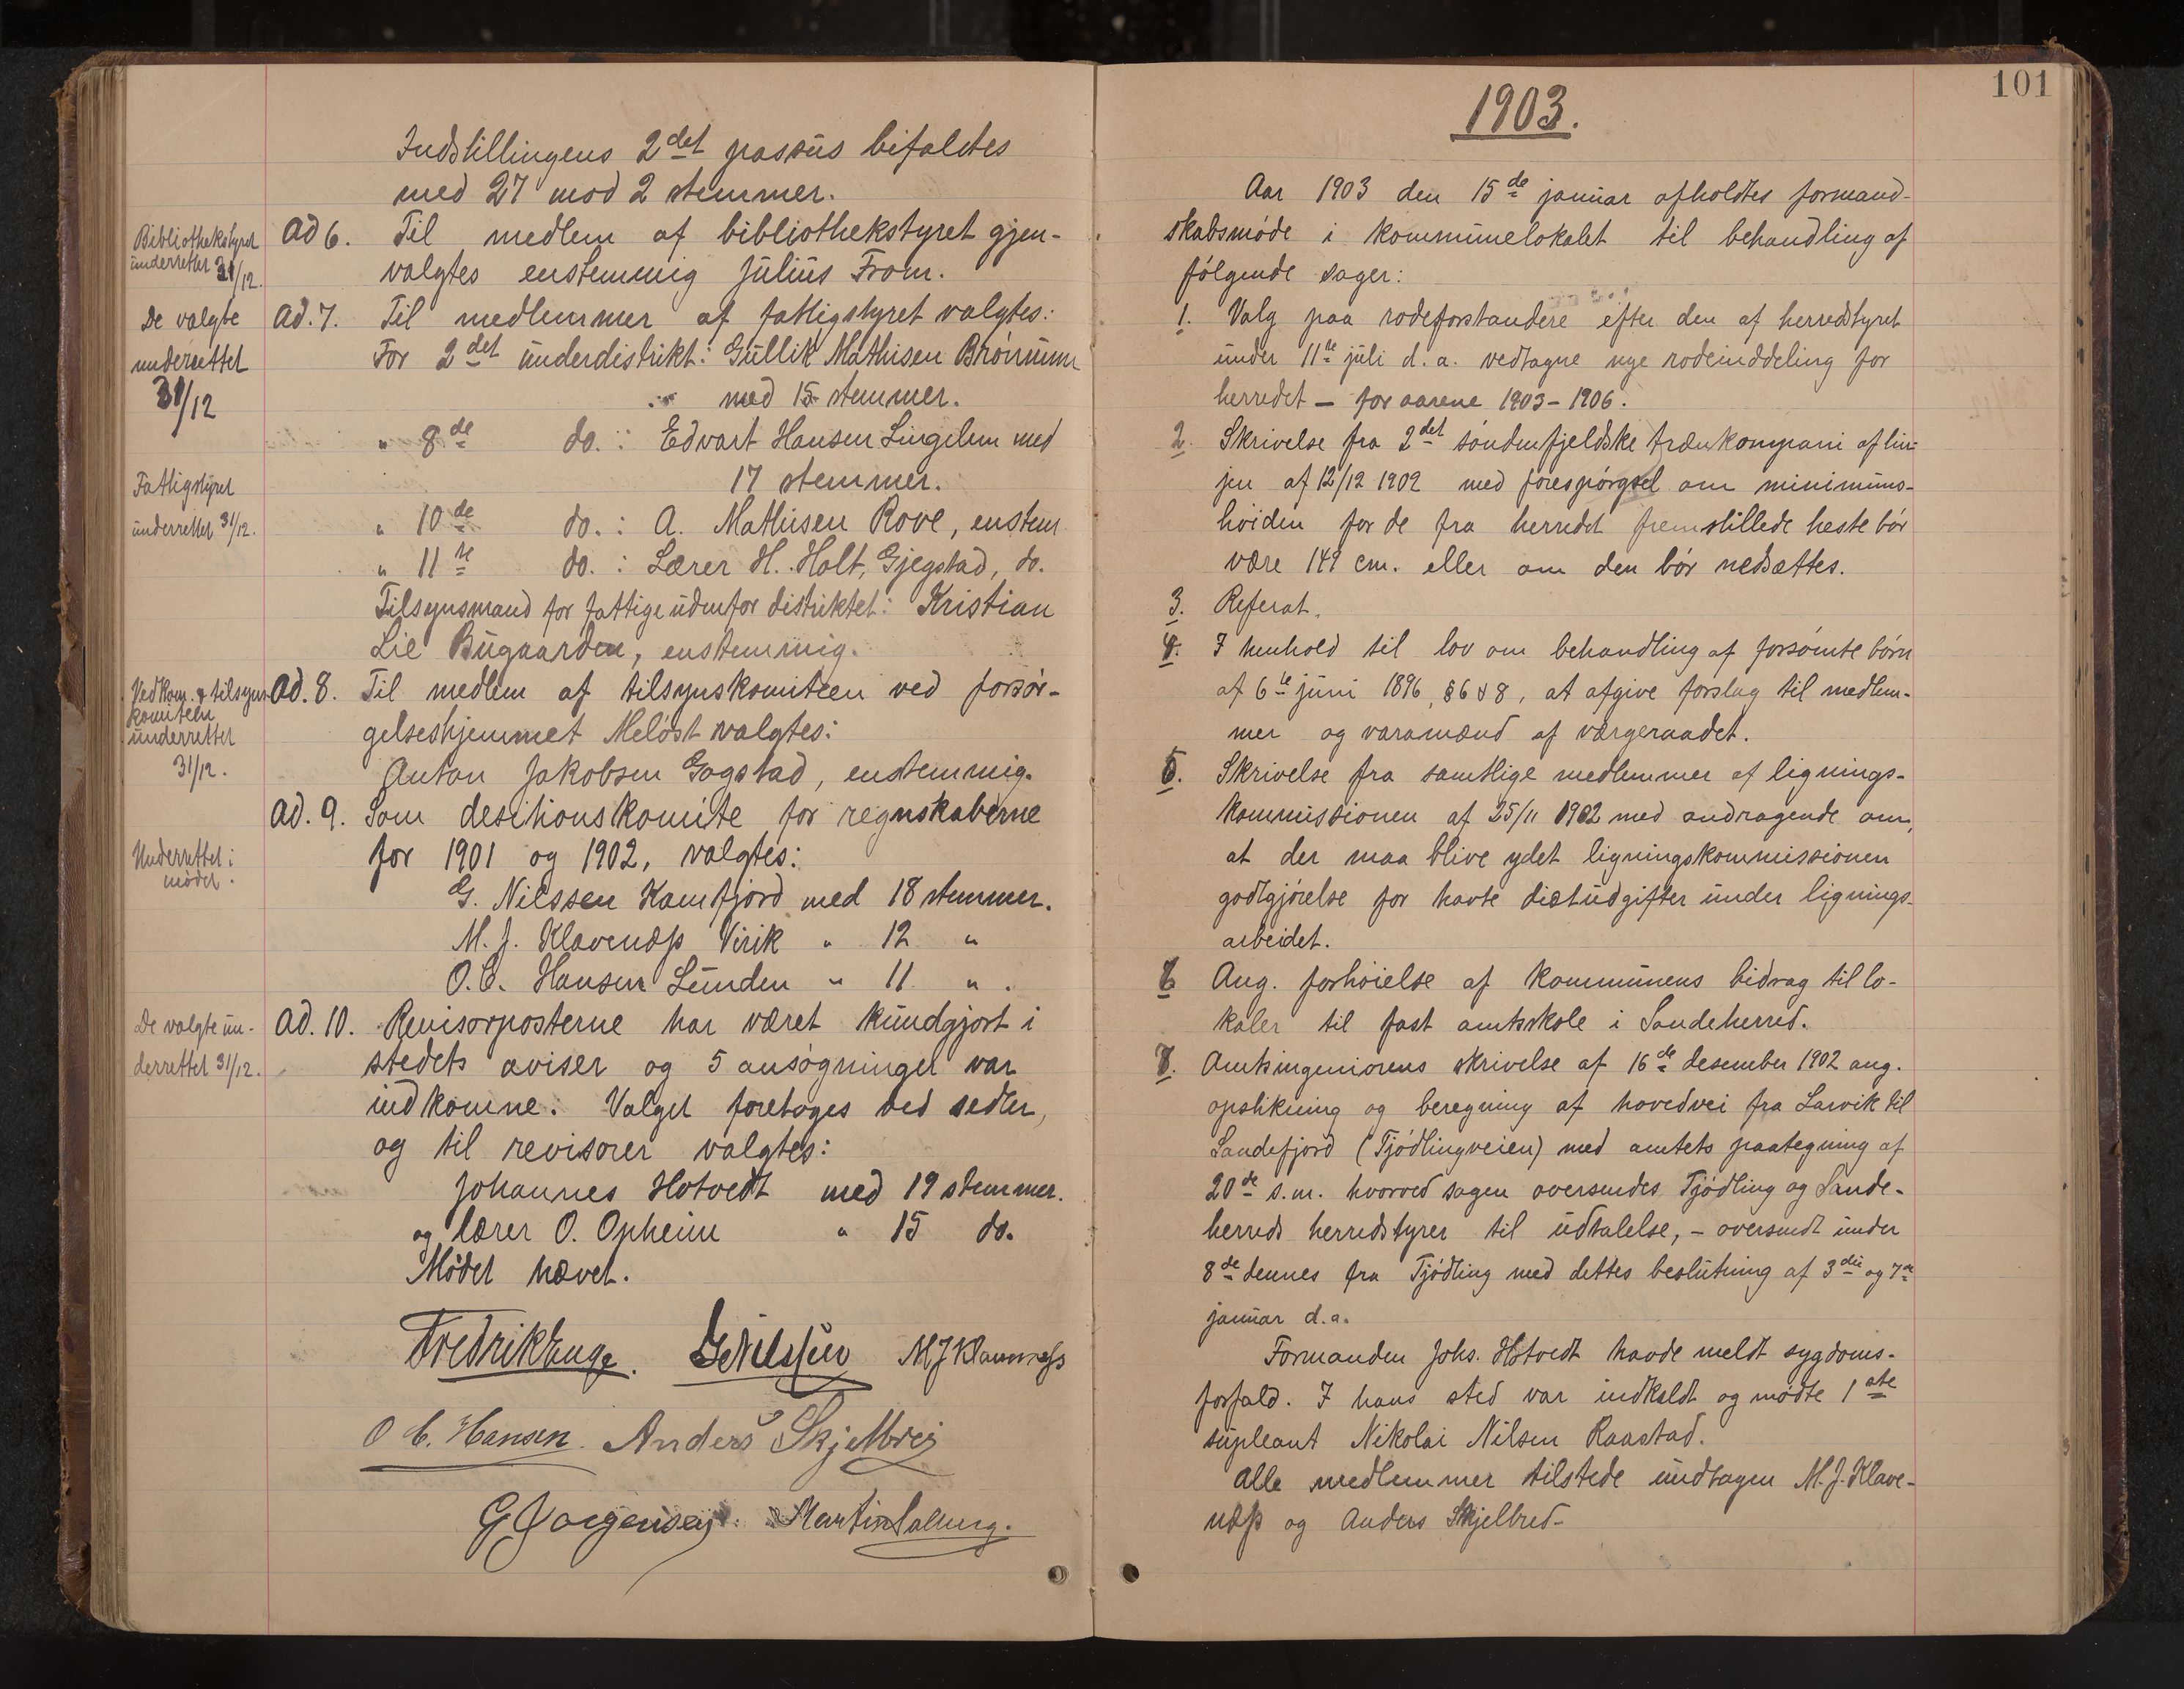 Indstillingens 2det passus bifaldtes
med 27 mod 2 stemmer.
Bibliothekstyret
underrettet 31/12.
Ad 6. Til medlem af bibliothekstyret gjen-
valgtes enstemmig Julius From.
De valgte
underrettet
31/12
Ad. 7. Til medlemmer af fattigstyret valgtes:
For 2det underdistrikt: Gullik Mathisen Brønnum
med 15 stemmer.
" 8de do. : Edvart Hansen Lingelem med
17 stemmer.
Fattigstyret
underrettet 31/12.
" 10de do. : A. Mathisen Rove, enstem
" 11te do. : Lærer H. Holt, Gjegstad, do.
Tilsynsmand for fattige udenfor distriktet: Kristian
Lie Bugaarden, enstemmig.
Vedkom. & tilsyns
komiteen
underrettet
31/12.
Ad. 8. Til medlem af tilsynskomiteen ved forsør-
gelseshjemmet Meløst valgtes:
Anton Jakobsen Gogstad, enstemmig.
Ad. 9. Som desitionskomite for regnskaberne
for 1901 og 1902, valgtes:
Underrettet i
mødet.
G. Nilssen Kamfjord med 18 stemmer.
M. J. Klavenæss Virik " 12 "
O. C. Hansen Lunden " 11 " .
De valgte un-
derrettet 31/12.
Ad. 10. Revisorposterne har været kundgjort i
stedets aviser og 5 ansøgninger var
indkomne. Valget foretoges ved sedler,
og til revisorer valgtes:
Johannes Hotvedt med 19 stemmer.
og lærer O. Opheim " 15 do.
Mødet hævet.
Fredrik Enge. G Nilssen M J Klavenæss
O C. Hansen. Anders Skjelbred
G Jørgensen Martin
101
1903.
Aar 1903 den 15de januar afholdtes formand-
skabsmøde i kommunelokalet til behandling af
følgende sager:
1. Valg paa rodeforstandere efter den af herredstyret
under 11te juli d. a. vedtagne nye rodeinddeling for
herredet – for aarene 1903 – 1906.
2. Skrivelse fra 2det søndenfjeldske trænkompani af lin-
jen af 12/12 1902 med forespørgsel om minimums-
høiden for de fra herredet fremstillede heste bør
være 149 cm. eller om den bør nedsættes.
3. Referat.
4. I henhold til lov om behandling af forsømte børn
af 6te juni 1896, § 6 & 8, at afgive forslag til medlem-
mer og varamænd af værgeraadet.
5. Skrivelse fra samtlige medlemmer af lignings-
kommissionen af 25/11 1902 med andragende om,
at der maa blive ydet ligningskommissionen
godtgjørelse for havte diætudgifter under lignings-
arbeidet.
6. Ang. forhøielse af kommunens bidrag til lo-
kaler til fast amtsskole i Sandeherred.
7. Amtsingeniørens skrivelse af 16de desember 1902 ang.
opstikning og beregning af hovedvei fra Larvik til
Sandefjord (Tjødlingveien) med amtets paategning af
20de s. m. hvorved sagen oversendes Tjødling og Sande-
herreds herredstyrer til udtalelse, – oversendt under
8de dennes fra Tjødling med dettes beslutning af 3die og 7de
januar d. a.
Formanden Johs. Hotvedt havde meldt sygdoms-
forfald. I hans sted var indkaldt og mødte 1ste
supleant Nikolai Nilsen Raastad.
Alle medlemmer tilstede undtagen M. J. Klave-
næss og Anders Skjelbred-